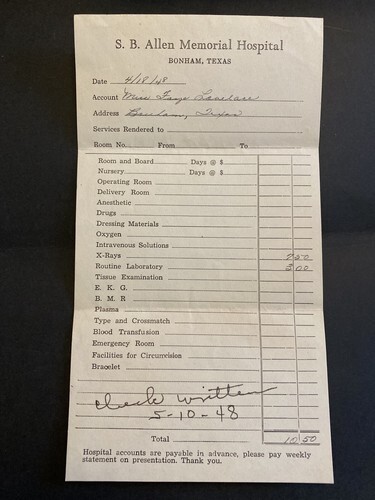 S. B. Allen Memorial Hospital
BONHAM, TEXAS
Date 4/18/48
Account Miss Faye Lovelace
Address Bonham, Texas
Services Rendered to
Room No. From To
Room and Board Days @ $
Nursery Days @ $
Operating Room
Delivery Room
Anesthetic
Drugs
Dressing Materials
Oxygen
Intravenous Solutions
X-Rays 7 50
Routine Laboratory 3 00
Tissue Examination
E. K. G.
B. M. R
Plasma
Type and Crossmatch
Blood Transfusion
Emergency Room
Facilities for Circumcision
Bracelet
check written
5-10-48
Total 10 50
Hospital accounts are payable in advance, please pay weekly
statement on presentation. Thank you.